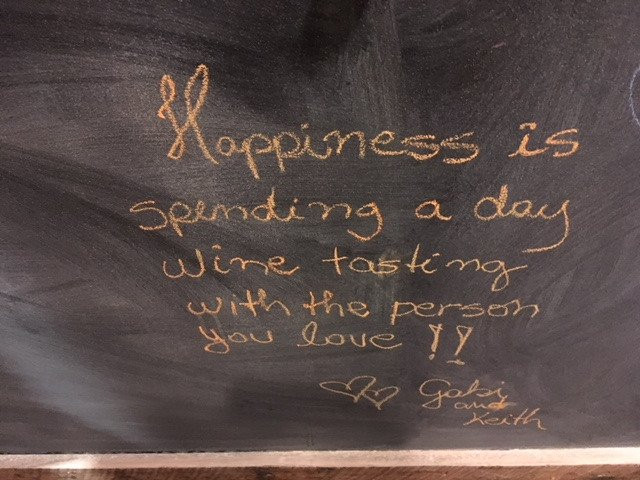 Happiness is
spending a day
wine tasting
with the person
you love !!
Gabi
and
Keith